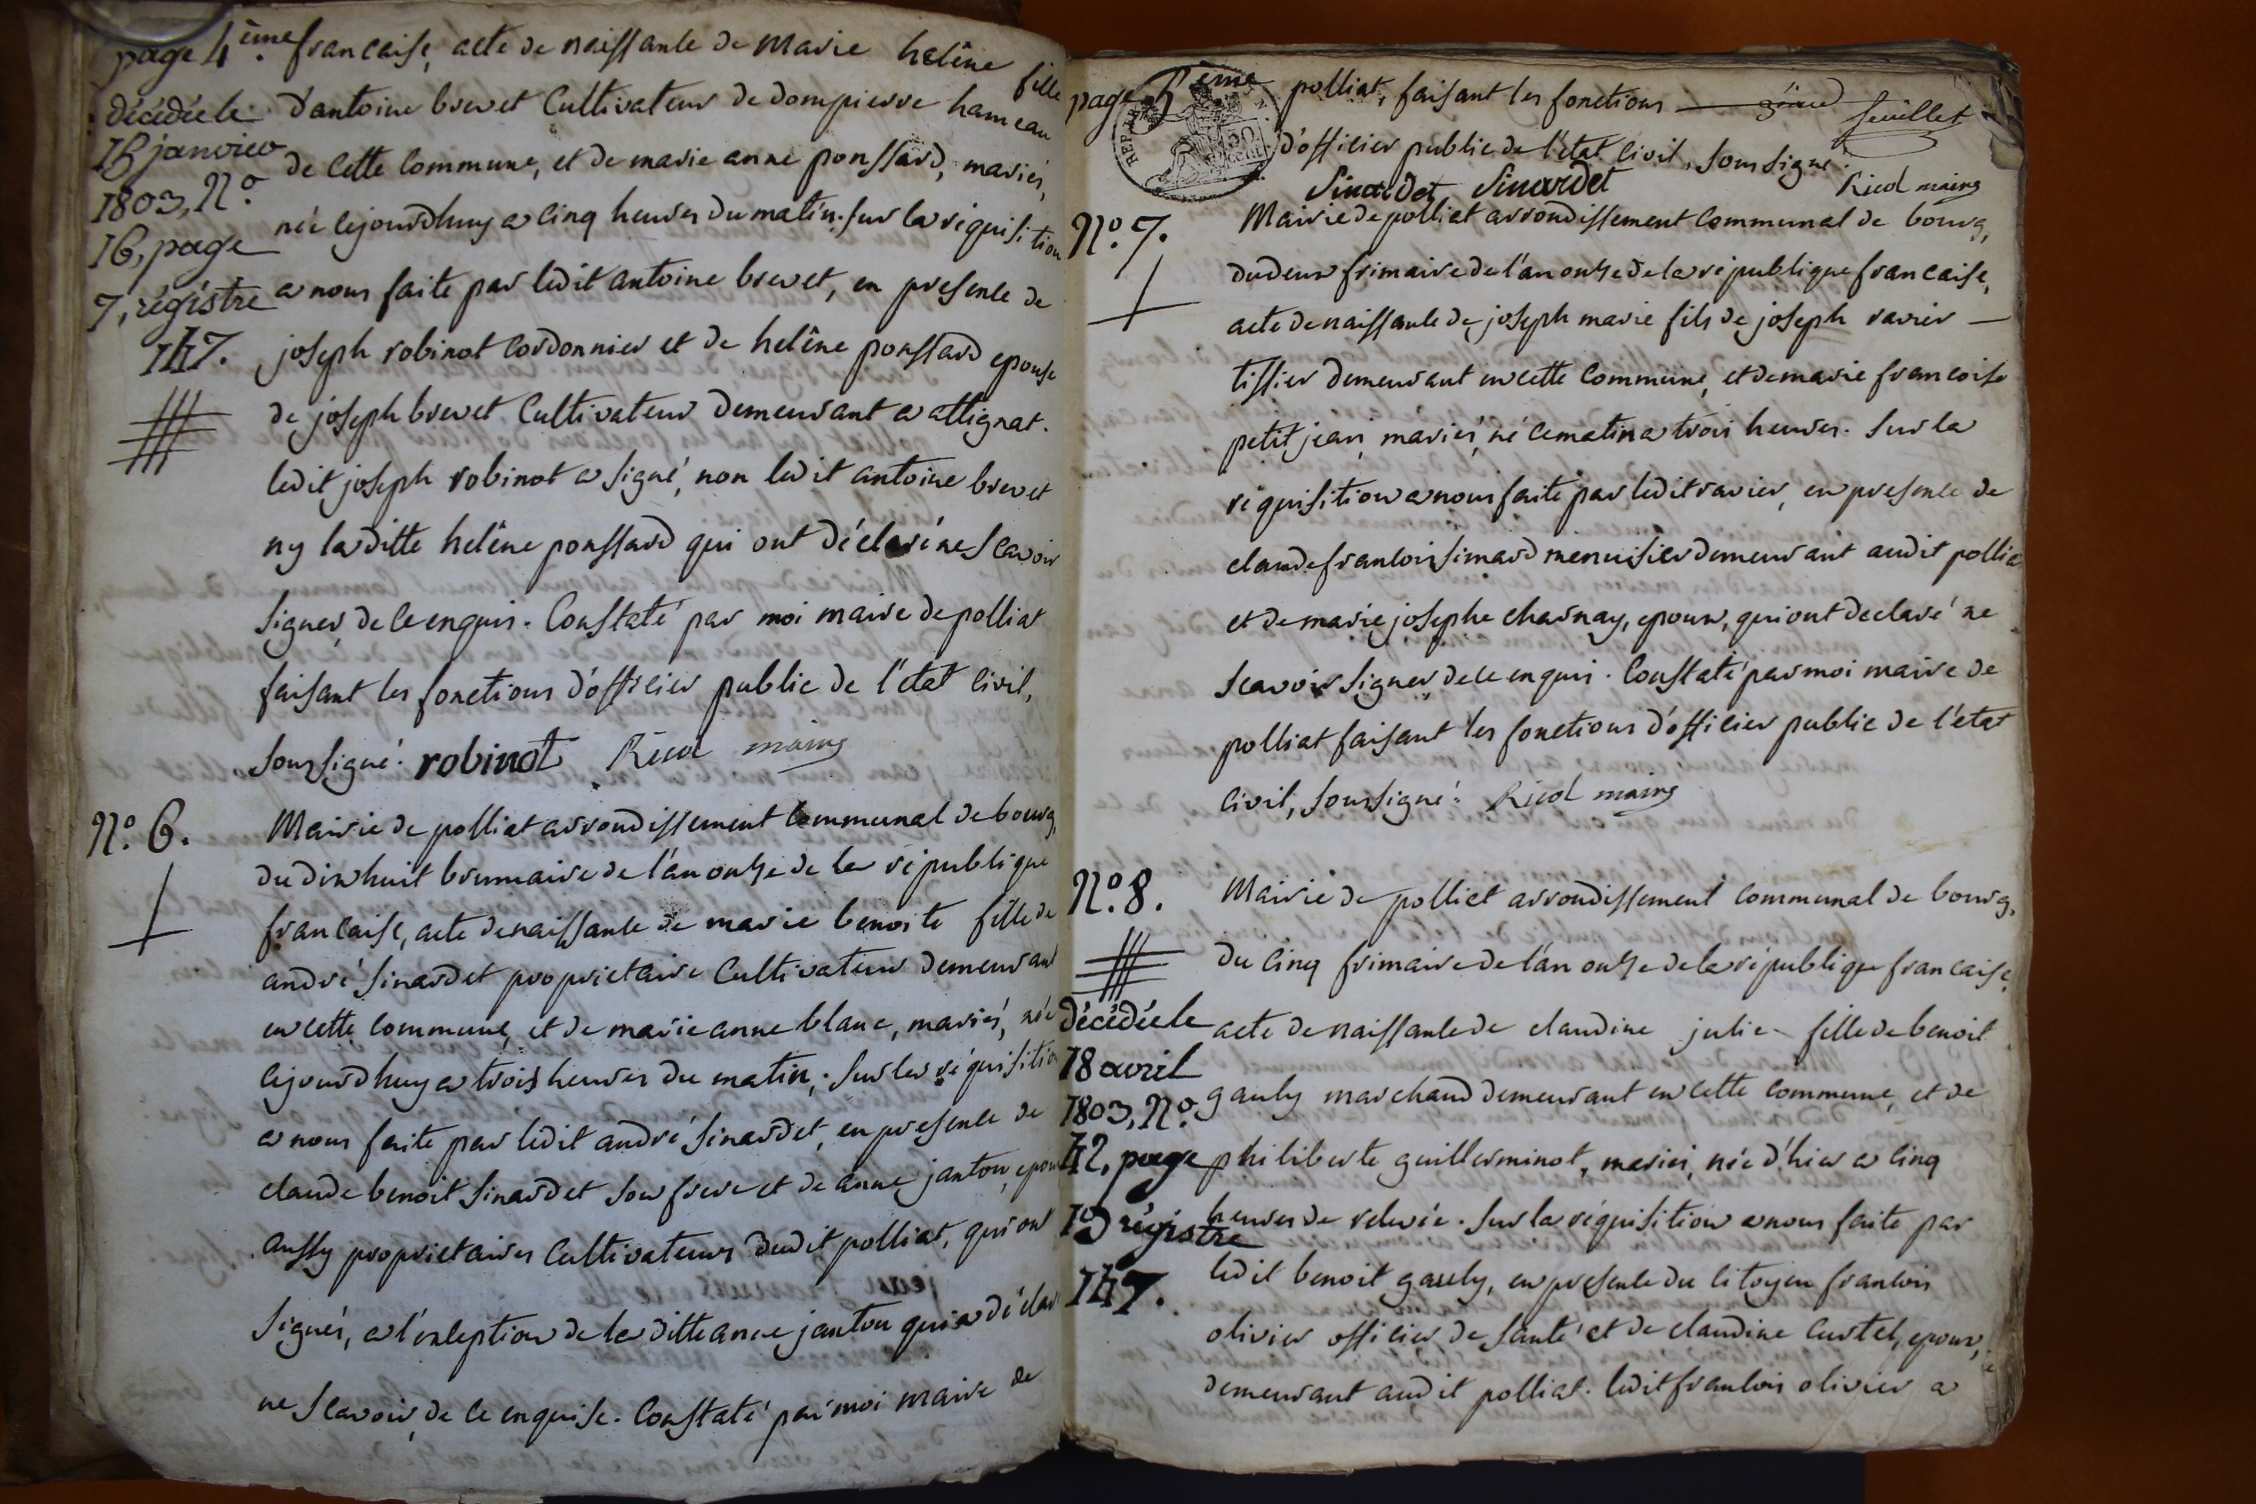 page 4ème.
francaise, acte de naissance de marie helêne fille
d'antoine brevet Cultivateur de dompierre hameau
de cette commune, et de marie anne ponssard, mariés,
née cejourdhuy a cinq heures du matin. sur la réquisition
a nous faite par ledit antoine brevet, en presence de
joseph robinot cordonnier et de helêne ponssard epouse
de joseph brevet Cultivateur demeurant a attignat.
ledit joseph robinot a signé, non ledit antoine brevet
ny laditte helêne ponssard qui ont déclaré ne scavoir
signer, de ce enquis. Constaté par moi maire de polliat
faisant les fonctions d'officier public de l'état civil,
soussigné. robinot Ricol maire
décédée le
15 janvier
1803, N.º
16, page
7, régistre
147.
N.º 6.
Mairie de polliat arrondissement communal de bourg,
du dixhuit brumaire de l'an onze de la république
francaise, acte de naissance de marie benoite fille de
andré sinardet proprietaire Cultivateur demeurant
en cette commune, et de marie anne blanc, mariés, née
cejourdhuy a trois heures du matin. sur la réquisition
a nous faite par ledit andré sinardet, en presence de
claude benoit sinardet son frere et de anne janton, epoux
aussy proprietaires Cultivateurs dudit polliat, qui ont
signés, a l'exception de la ditte anne janton qui a déclaré
ne scavoir, de ce enquise. Constaté par moi maire de
page 5ème
polliat, faisant les fonctions 3ème feuillet
d'officier public de l'état civil, soussigné.
Sinardet Sinardet Ricol maire
N.º 7.
Mairie de polliat arrondissement communal de bourg,
du deux frimaire de l'an onze de la république francaise,
acte de naissance de joseph marie fils de joseph ravier
tissier demeurant en cette commune, et de marie francoise
petit jean, mariés, né ce matin a trois heures. sur la
réquisition a nous faite par ledit ravier, en presence de
claude francois simard menuisier demeurant audit pollia
et de marie josephe charnay, epoux, qui ont declaré ne
scavoir signer, de ce enquis. Constaté par moi maire de
polliat faisant les fonctions d'officier public de l'état
civil, soussigné. Ricol maire
N.º 8.
Mairie de polliat arrondissement communal de bourg,
du cinq frimaire de l'an onze de la république francaise,
acte de naissance de claudine julie fille de benoit
gauly marchand demeurant en cette commune, et de
philiberte guillerminot, mariés, née d'hier a cinq
heures de relevée. sur la réquisition a nous faite par
ledit benoit gauly, en presence du citoyen francois
olivier officier de santé et de claudine Curtet, epoux,
demeurant audit polliat. ledit francois olivier a
décédée le
18 avril
1803, N.º
42, page
19 régistre
147.